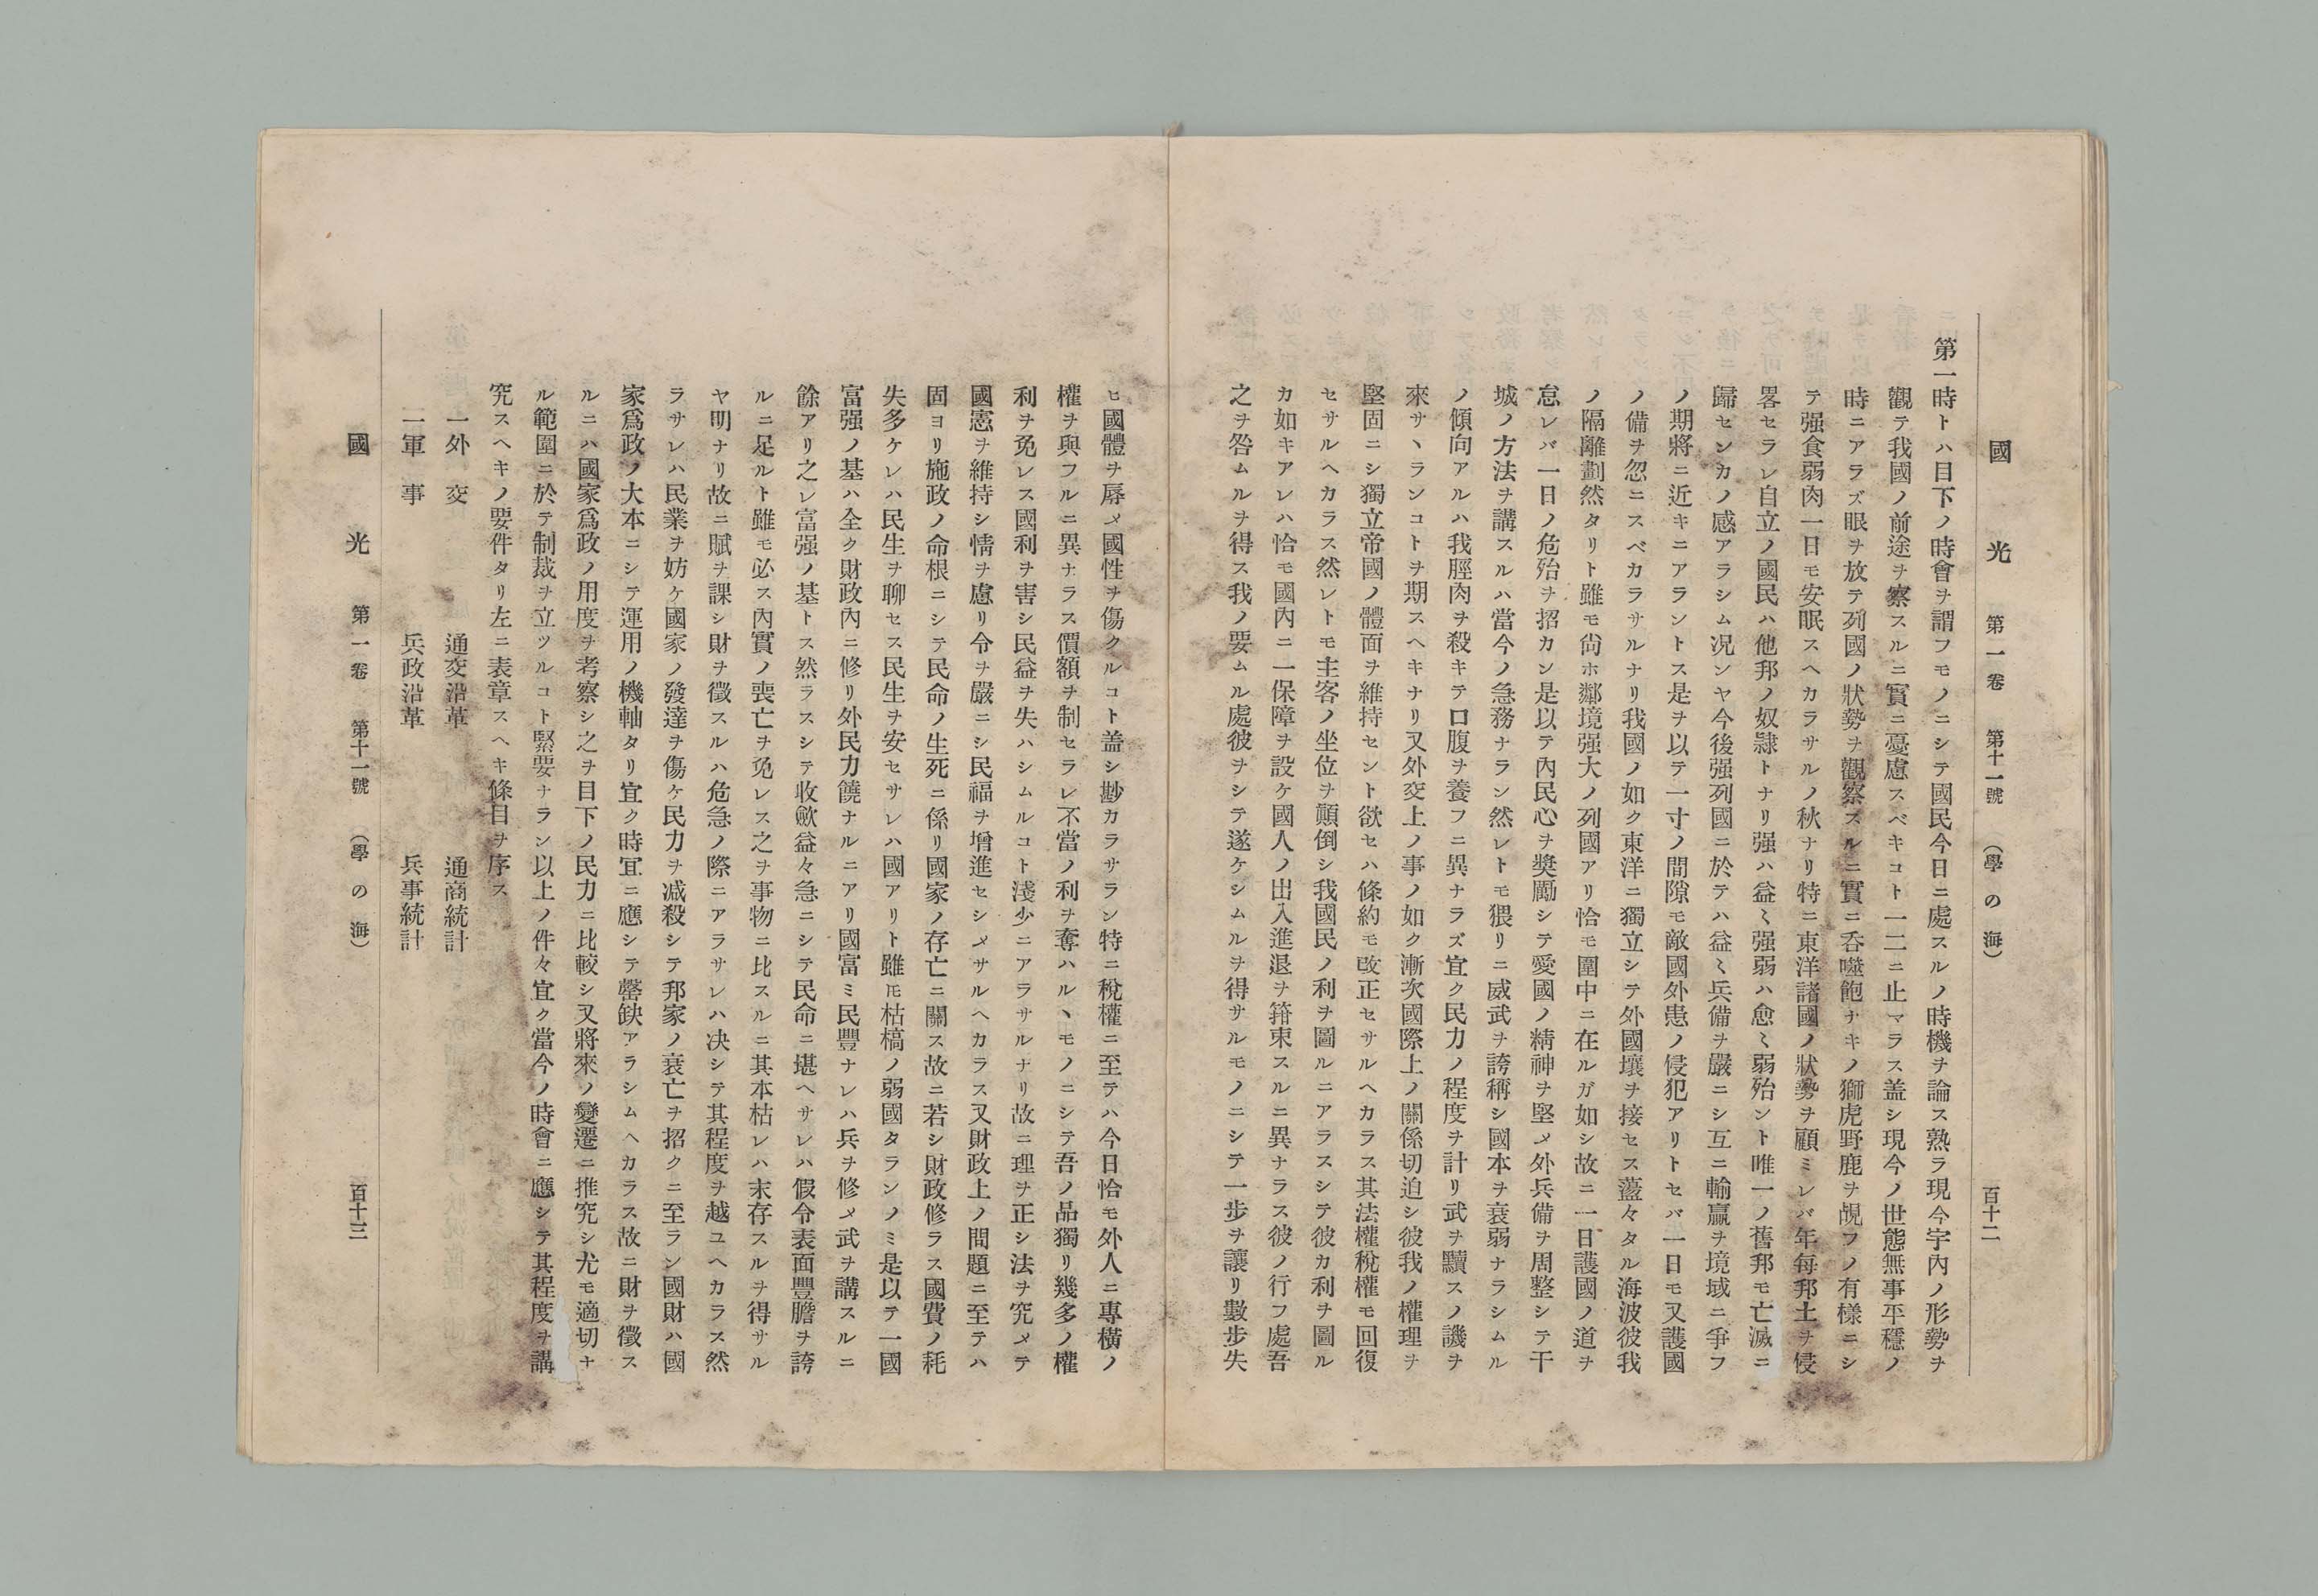 國光 第一卷 第十一號 （學の海） 百十二
第一時トハ目下ノ時會ヲ謂フモノニシテ國民今日ニ處スルノ時機ヲ論ス熟ラ現今宇內ノ形勢ヲ
觀テ我國ノ前途ヲ察スルニ實ニ憂慮スベキコト一二ニ止マラス盖シ現今ノ世態無事平穩ノ
時ニアラズ眼ヲ放テ列國ノ狀勢ヲ觀察スルニ實ニ呑噬飽ナキノ獅虎野鹿ヲ覘フノ有樣ニシ
テ强食弱肉一日モ安眠スヘカラサルノ秋ナリ特ニ東洋諸國ノ狀勢ヲ顧ミレバ年每邦土ヲ侵
畧セラレ自立ノ國民ハ他邦ノ奴隸トナリ强ハ益〻强弱ハ愈〻弱殆ント唯一ノ舊邦モ亡滅ニ
歸センカノ感アラシム况ンヤ今後强列國ニ於テハ益〻兵備ヲ嚴ニシ互ニ輸贏ヲ境域ニ爭フ
ノ期將ニ近キニアラントス是ヲ以テ一寸ノ間隙モ敵國外患ノ侵犯アリトセバ一日モ又護國
ノ備ヲ忽ニスベカラサルナリ我國ノ如ク東洋ニ獨立シテ外國壤ヲ接セス蘯々タル海波彼我
ノ隔離劃然タリト雖モ尙ホ鄰境强大ノ列國アリ恰モ圍中ニ在ルガ如シ故ニ一日護國ノ道ヲ
怠レバ一日ノ危殆ヲ招カン是以テ內民心ヲ奬勵シテ愛國ノ精神ヲ堅メ外兵備ヲ周整シテ干
城ノ方法ヲ講スルハ當今ノ急務ナラン然レトモ猥リニ威武ヲ誇稱シ國本ヲ衰弱ナラシムル
ノ傾向アルハ我脛肉ヲ殺キテ口腹ヲ養フニ異ナラズ宜ク民力ノ程度ヲ計リ武ヲ黷スノ譏ヲ
來サヽランコトヲ期スヘキナリ又外交上ノ事ノ如ク漸次國際上ノ關係切迫シ彼我ノ權理ヲ
堅固ニシ獨立帝國ノ體面ヲ維持セント欲セハ條約モ改正セサルヘカラス其法權稅權モ回復
セサルヘカラス然レトモ主客ノ坐位ヲ顚倒シ我國民ノ利ヲ圖ルニアラスシテ彼カ利ヲ圖ル
カ如キアレハ恰モ國內ニ一保障ヲ設ケ國人ノ出入進退ヲ箝束スルニ異ナラス彼ノ行フ處吾
之ヲ咎ムルヲ得ス我ノ要ムル處彼ヲシテ遂ケシムルヲ得サルモノニシテ一步ヲ讓リ數步失
ヒ國體ヲ辱メ國性ヲ傷クルコト盖シ尠カラサラン特ニ稅權ニ至テハ今日恰モ外人ニ專橫ノ
權ヲ與フルニ異ナラス價額ヲ制セラレ不當ノ利ヲ奪ハルヽモノニシテ吾ノ品獨リ幾多ノ權
利ヲ免レス國利ヲ害シ民益ヲ失ハシムルコト淺少ニアラサルナリ故ニ理ヲ正シ法ヲ究メテ
國憲ヲ維持シ情ヲ慮リ令ヲ嚴ニシ民福ヲ增進セシメサルヘカラス又財政上ノ問題ニ至テハ
固ヨリ施政ノ命根ニシテ民命ノ生死ニ係リ國家ノ存亡ニ關ス故ニ若シ財政修ラス國費ノ耗
失多ケレハ民生ヲ聊セス民生ヲ安セサレハ國アリト雖𪜈枯槁ノ弱國タランノミ是以テ一國
富强ノ基ハ全ク財政內ニ修リ外民力饒ナルニアリ國富ミ民豐ナレハ兵ヲ修メ武ヲ講スルニ
餘アリ之レ富强ノ基トス然ラスシテ收斂益々急ニシテ民命ニ堪ヘサレハ假令表面豐膽ヲ誇
ルニ足ルト雖モ必ス內實ノ喪亡ヲ免レス之ヲ事物ニ比スルニ其本枯レハ末存スルヲ得サル
ヤ明ナリ故ニ賦ヲ課シ財ヲ徵スルハ危急ノ際ニアラサレハ决シテ其程度ヲ越ユヘカラス然
ラサレハ民業ヲ妨ケ國家ノ發達ヲ傷ケ民力ヲ減殺シテ邦家ノ衰亡ヲ招クニ至ラン國財ハ國
家爲政ノ大本ニシテ運用ノ機軸タリ宜ク時冝ニ應シテ罄缺アラシムヘカラス故ニ財ヲ徵ス
ルニハ國家爲政ノ用度ヲ考察シ之ヲ目下ノ民力ニ比較シ又將來ノ變遷ニ推究シ尤モ適切ナ
ル範圍ニ於テ制裁ヲ立ツルコト緊要ナラン以上ノ件々宜ク當今ノ時會ニ應シテ其程度ヲ講
究スヘキノ要件タリ左ニ表章スヘキ條目ヲ序ス
一外交 通交沿革 通商統計
二軍事 兵政沿革 兵事統計
國光 第一卷 第十一號 （學の海） 百十三